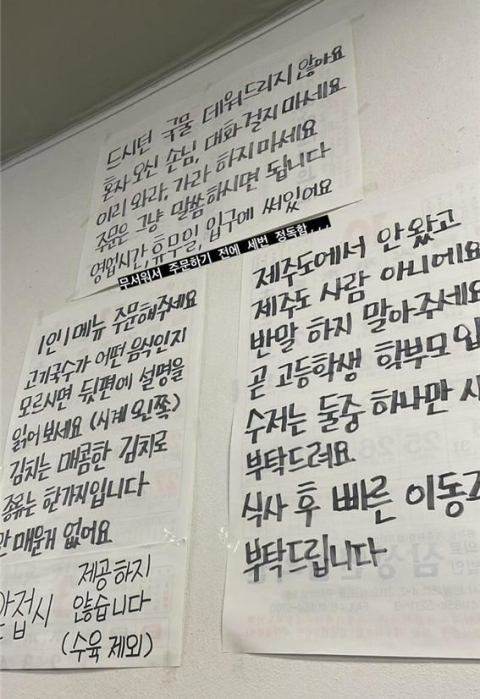 드시던 국물 데워드리지 않아요
혼자 오신 손님, 대화 걸지 마세요
이리 와라, 가라 하지마세요
주문은 그냥 말씀하시면 됩니다
영업시간, 휴무일, 입구에 써있어요
무서워서 주문하기 전에 세번 정독함...
1인 1메뉴 주문해주세요
고기국수가 어떤 음식인지
모르시면 뒷편에 설명을
읽어보세요 (시계 왼쪽)
김치는 매콤한 김치로
종류는 한가지입니다
안 매운거 없어요
앞접시 제공하지
않습니다
(수육 제외)
제주도에서 안 왔고
제주도 사람 아니에요
반말 하지 말아주세요
곧 고등학생 학부모
수저는 둘중 하나만
부탁드려요
식사 후 빠른
부탁드립니다